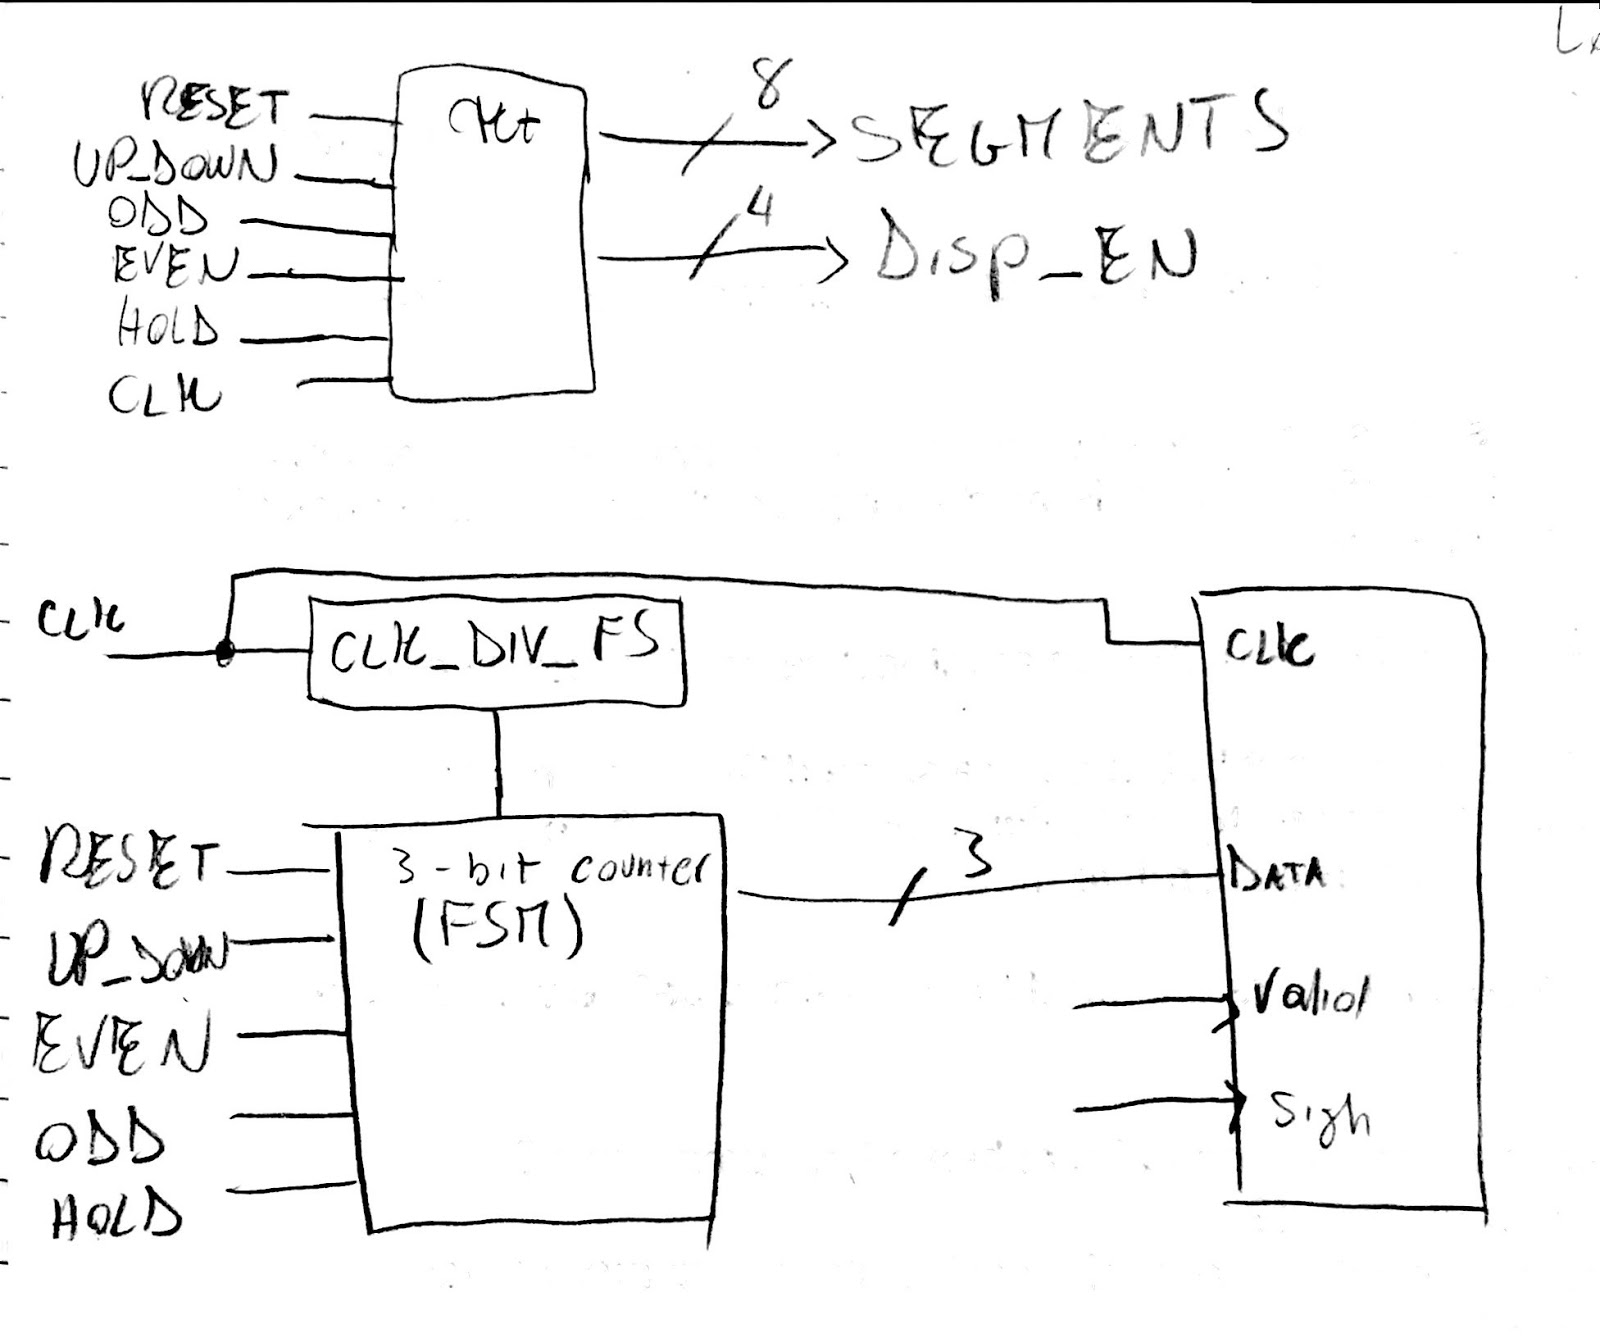 RESET
UP_DOWN
ODD
EVEN
HOLD
CLK
8
SEGMENTS
4
Disp_EN
CLK
CLK_DIV_FS
CLK
RESET
UP_DOWN
EVEN
ODD
HOLD
3-bit counter
(FSM)
3
DATA
Valid
Sign